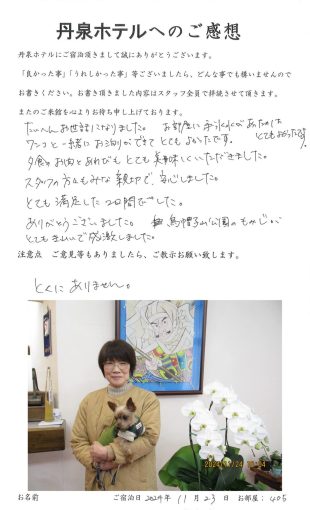 丹泉ホテルへのご感想
丹泉ホテルにご宿泊頂きまして誠にありがとうございます。
「良かった事」「うれしかった事」等ございましたら、どんな事でも構いませんので
お書きください。お書き頂きました内容はスタッフ全員で拝読させて頂きます。
またのご来館を心よりお待ち申し上げております。
たいへんお世話になりました。 お部屋に手洗いが
とてもよかったです。
ワンコと一緒にお泊りができてとてもよかったです。
夕食のお肉とあわびもとても美味しくいただきました。
スタッフの方々もみな親切で、安心しました。
とても満足した2日間でした。
ありがとうございました。 烏帽子山公園のもみじが
とてもきれいで感激しました。
注意点 ご意見等もありましたら、ご教示お願い致します。
とくにありません。
2024/11/24
お名前 ご宿泊日 2024年 11月 23日 お部屋: 405